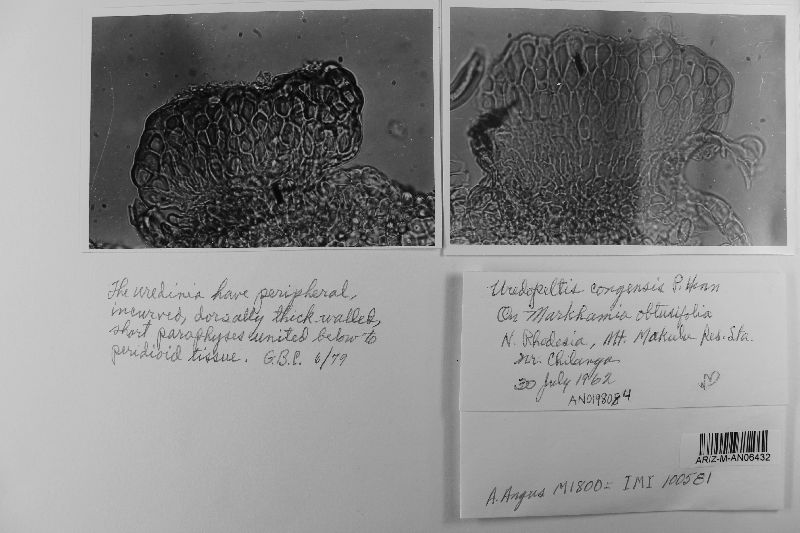 The uredinia have peripheral,
incurved, dorsally thick-walled,
short paraphyses united below to
peridioid tissue. G.B.C. 6/79
Uredopeltis congensis P. Henn
On Markhamia obtusifolia
N. Rhodesia, Mt. Makulu Res. Sta.
nr. Chilanga
30 July 1962
AN0198084
ARIZ-M-AN06432
A. Angus M1800 = IMI 100581